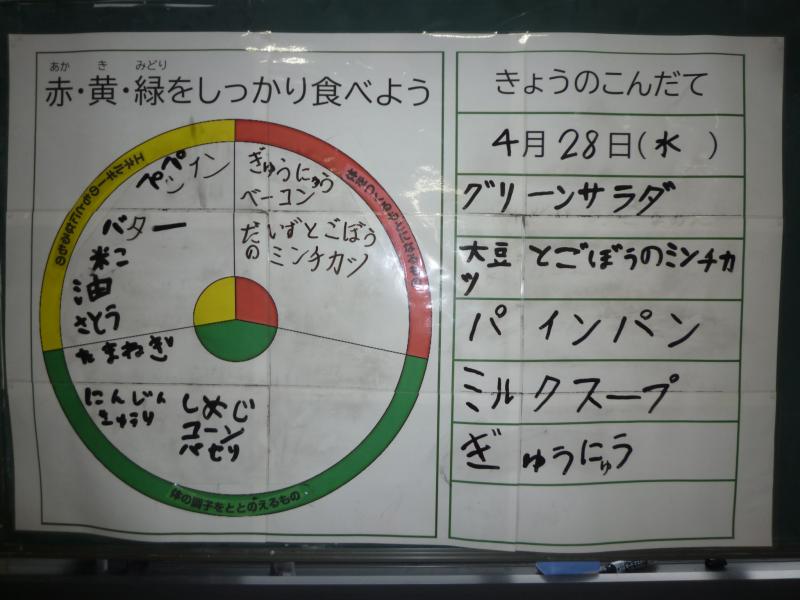 あか き みどり
赤・黄・緑をしっかり食べよう
エネルギーのもとになるもの
体をつくるもとになるもの
体の調子をととのえるもの
ぎゅうにゅう
ベーコン
だいずとごぼうの
ミンチカツ
バター
米こ
油
さとう
たまねぎ
にんじん
きゅうり
しめじ
コーン
パセリ
きょうのこんだて
4月28日(水)
グリーンサラダ
大豆とごぼうのミンチカ
ツ
パインパン
ミルクスープ
ぎゅうにゅう